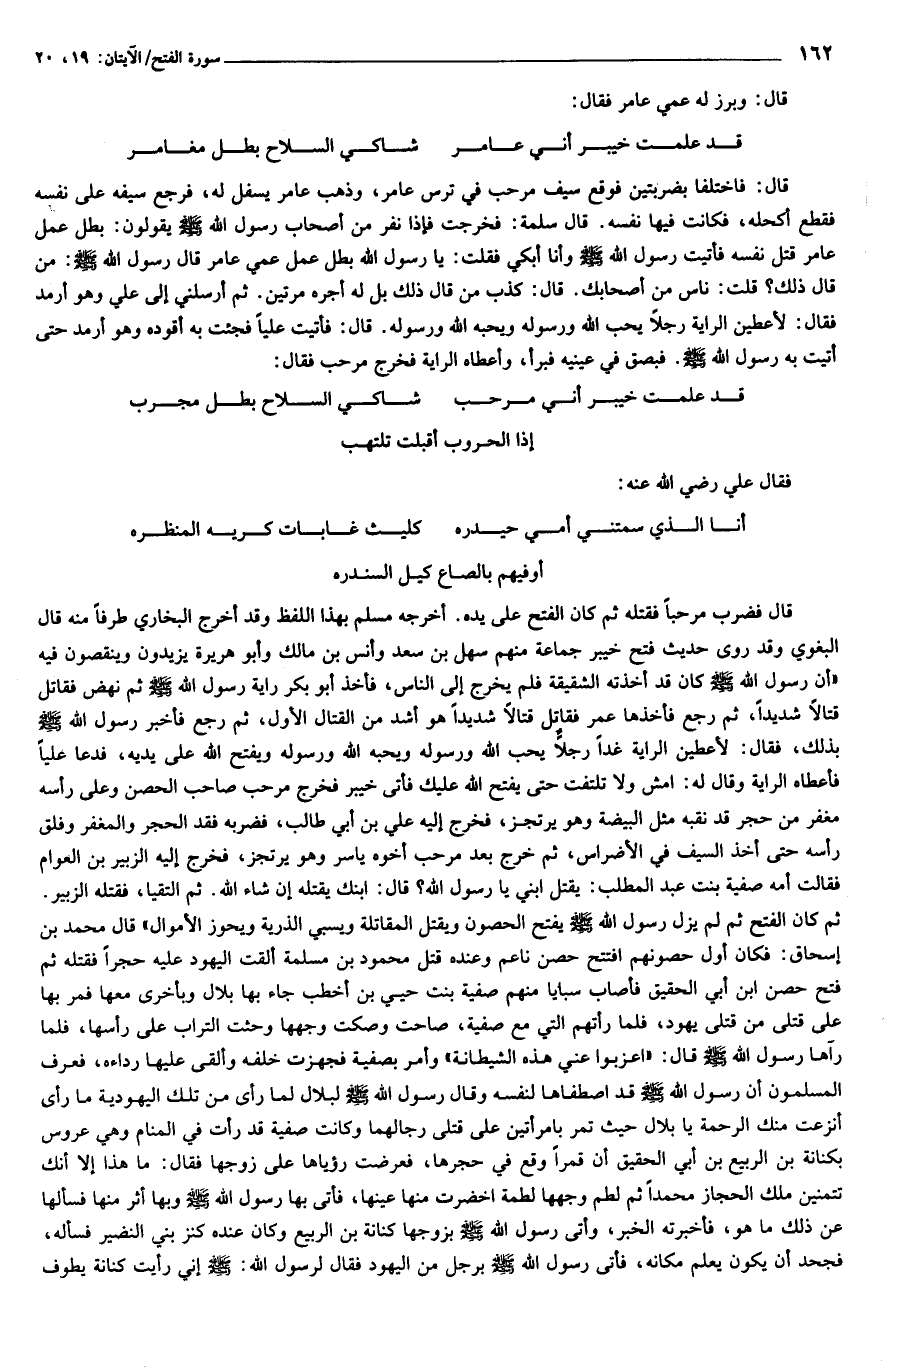 ١٦٢ سورة الفتح/ الآيتان: ١٩، ٢٠
قال: وبرز له عمي عامر فقال:
قـد علمـت خيبـر أنـي عـامـر شـاكـي السـلاح بطـل مغـامـر
قال: فاختلفا بضربتين فوقع سيف مرحب في ترس عامر، وذهب عامر يسفل له، فرجع سيفه على نفسه
فقطع أكحله، فكانت فيها نفسه. قال سلمة: فخرجت فإذا نفر من أصحاب رسول الله ﷺ يقولون: بطل عمل
عامر قتل نفسه فأتيت رسول الله ﷺ وأنا أبكي فقلت: يا رسول الله بطل عمل عمي عامر قال رسول الله ﷺ: من
قال ذلك؟ قلت: ناس من أصحابك. قال: كذب من قال ذلك بل له أجره مرتين. ثم أرسلني إلى علي وهو أرمد
فقال: لأعطين الراية رجلاً يحب الله ورسوله ويحبه الله ورسوله. قال: فأتيت علياً فجئت به أقوده وهو أرمد حتى
أتيت به رسول الله ﷺ. فبصق في عينيه فبرأ، وأعطاه الراية فخرج مرحب فقال:
قـد علمـت خيبـر أنـي مـرحـب شـاكـي السـلاح بطـل مجـرب
إذا الحـروب أقبلت تلتهـب
فقال علي رضي الله عنه:
أنـا الـذي سمتنـي أمـي حيـدره كليـث غـابـات كـريـه المنظـره
أوفيهم بالصـاع كيـل السنـدره
قال فضرب مرحباً فقتله ثم كان الفتح على يده. أخرجه مسلم بهذا اللفظ وقد أخرج البخاري طرفاً منه قال
البغوي وقد روى حديث فتح خيبر جماعة منهم سهل بن سعد وأنس بن مالك وأبو هريرة يزيدون وينقصون فيه
«أن رسول الله ﷺ كان قد أخذته الشقيقة فلم يخرج إلى الناس، فأخذ أبو بكر راية رسول الله ﷺ ثم نهض فقاتل
قتالاً شديداً، ثم رجع فأخذها عمر فقاتل قتالاً شديداً هو أشد من القتال الأول، ثم رجع فأخبر رسول الله ﷺ
بذلك، فقال: لأعطين الراية غداً رجلاً يحب الله ورسوله ويحبه الله ورسوله ويفتح الله على يديه، فدعا علياً
فأعطاه الراية وقال له: امش ولا تلتفت حتى يفتح الله عليك فأتى خيبر فخرج مرحب صاحب الحصن وعلى رأسه
مغفر من حجر قد نقبه مثل البيضة وهو يرتجز، فخرج إليه علي بن أبي طالب، فضربه فقد الحجر والمغفر وفلق
رأسه حتى أخذ السيف في الأضراس، ثم خرج بعد مرحب أخوه ياسر وهو يرتجز، فخرج إليه الزبير بن العوام
فقالت أمه صفية بنت عبد المطلب: يقتل ابني يا رسول الله؟ قال: ابنك يقتله إن شاء الله. ثم التقيا، فقتله الزبير.
ثم كان الفتح ثم لم يزل رسول الله ﷺ يفتح الحصون ويقتل المقاتلة ويسبي الذرية ويحوز الأموال» قال محمد بن
إسحاق: فكان أول حصونهم افتتح حصن ناعم وعنده قتل محمود بن مسلمة ألقت اليهود عليه حجراً فقتله ثم
فتح حصن ابن أبي الحقيق فأصاب سبايا منهم صفية بنت حيـي بن أخطب جاء بها بلال وبأخرى معها فمر بها
على قتلى من قتلى يهود، فلما رأتهم التي مع صفية، صاحت وصكت وجهها وحثت التراب على رأسها، فلما
رآها رسول الله ﷺ قال: «اعزبوا عني هذه الشيطانة» وأمر بصفية فجهزت خلفه وألقى عليها رداءه، فعرف
المسلمون أن رسول الله ﷺ قد اصطفاها لنفسه وقال رسول الله ﷺ لبلال لما رأى من تلك اليهودية ما رأى
أنزعت منك الرحمة يا بلال حيث تمر بامرأتين على قتلى رجالهما وكانت صفية قد رأت في المنام وهي عروس
بكنانة بن الربيع بن أبي الحقيق أن قمراً وقع في حجرها، فعرضت رؤياها على زوجها فقال: ما هذا إلا أنك
تتمنين ملك الحجاز محمداً ثم لطم وجهها لطمة اخضرت منها عينها، فأتى بها رسول الله ﷺ وبها أثر منها فسألها
عن ذلك ما هو، فأخبرته الخبر، وأتى رسول الله ﷺ بزوجها كنانة بن الربيع وكان عنده كنز بني النضير فسأله،
فجحد أن يكون يعلم مكانه، فأتى رسول الله ﷺ برجل من اليهود فقال لرسول الله: ﷺ إني رأيت كنانة يطوف